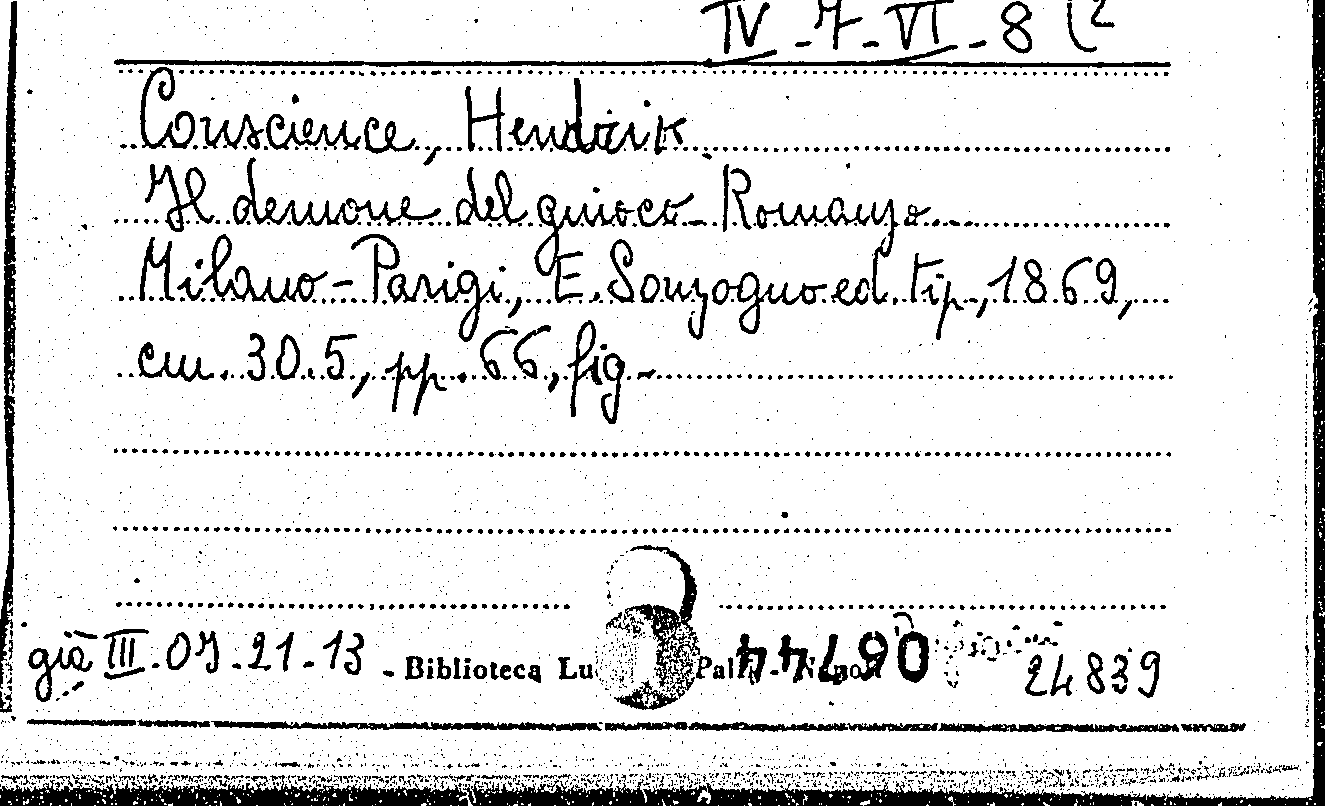 IV-7-VI-8 (2
Conscience, Hendrik.
Il demone del giuoco - Romanzo.
Milano - Parigi, E. Sonzogno ed. tip., 1869,
cm. 30.5, pp. 66, fig -
già III.07.21.13 - Biblioteca Lu 067444 24839